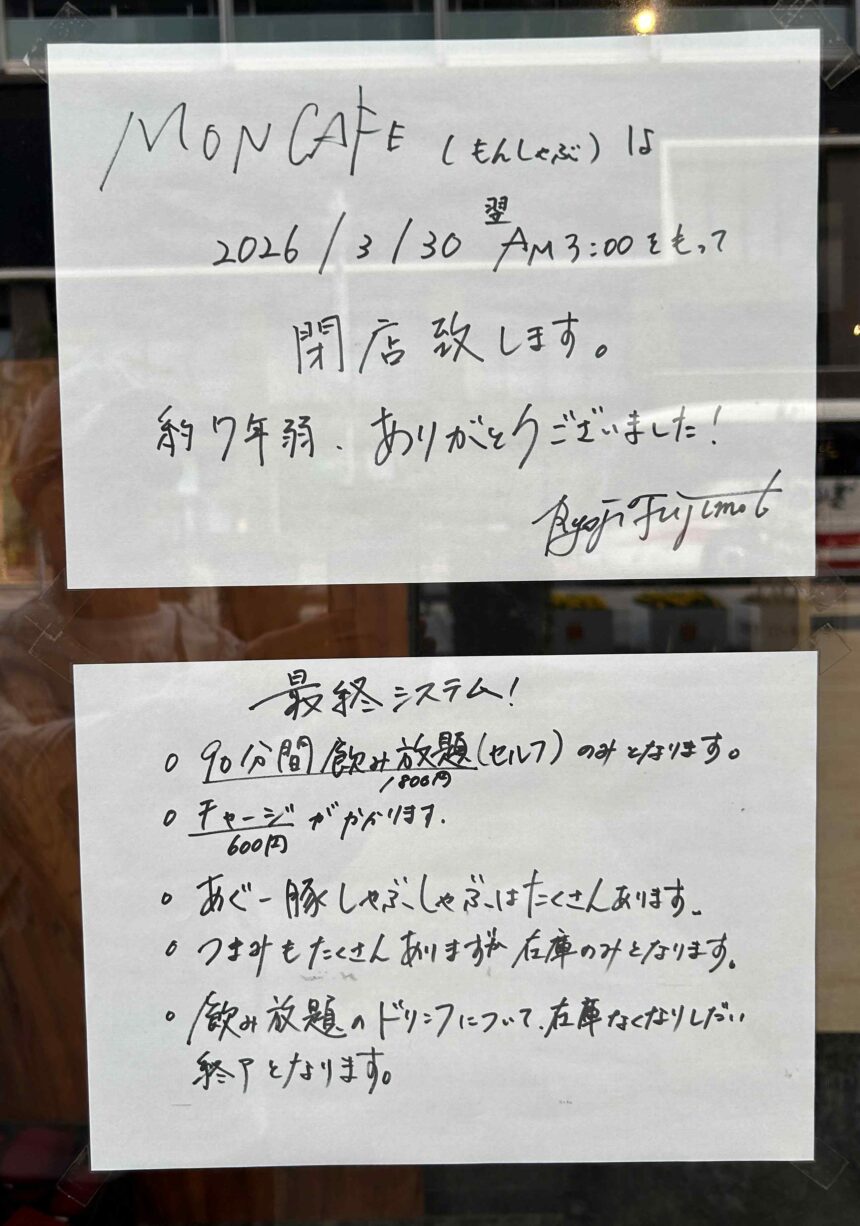 MON CAFE (もんしゃぶ)は
2026/3/30 翌AM3:00をもって
閉店致します。
約7年弱、ありがとうございました!
Ryoji Fujimoto
最終システム!
○ 90分間飲み放題(セルフ)のみとなります。
1800円
○ チャージがかかります。
600円
○ あぐー豚しゃぶしゃぶはたくさんあります。
○ つまみもたくさんありますが在庫のみとなります。
○ 飲み放題のドリンクについて、在庫なくなりしだい
終了となります。